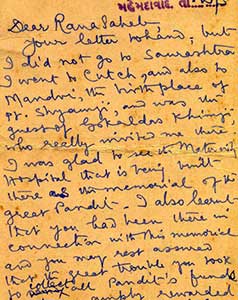 મહેમદાવાદ, તા.
Dear Rana Saheb
Your letter to hand; but
I did not go to Saurashtra
I went to Cutch and also to
Mandvi, the birth place of
Pt. Shyamji, and was the
guest of Gokaldas Khimji,
who really invited me there
I was glad to see the Maternity
Hospital that is being built
there as the memorial of the
great Pandit. I also learnt
that you had been there in
connection with this memorial
and you may rest assured
that the great trouble you took
to collect all Pandit's funds
amply rewarded